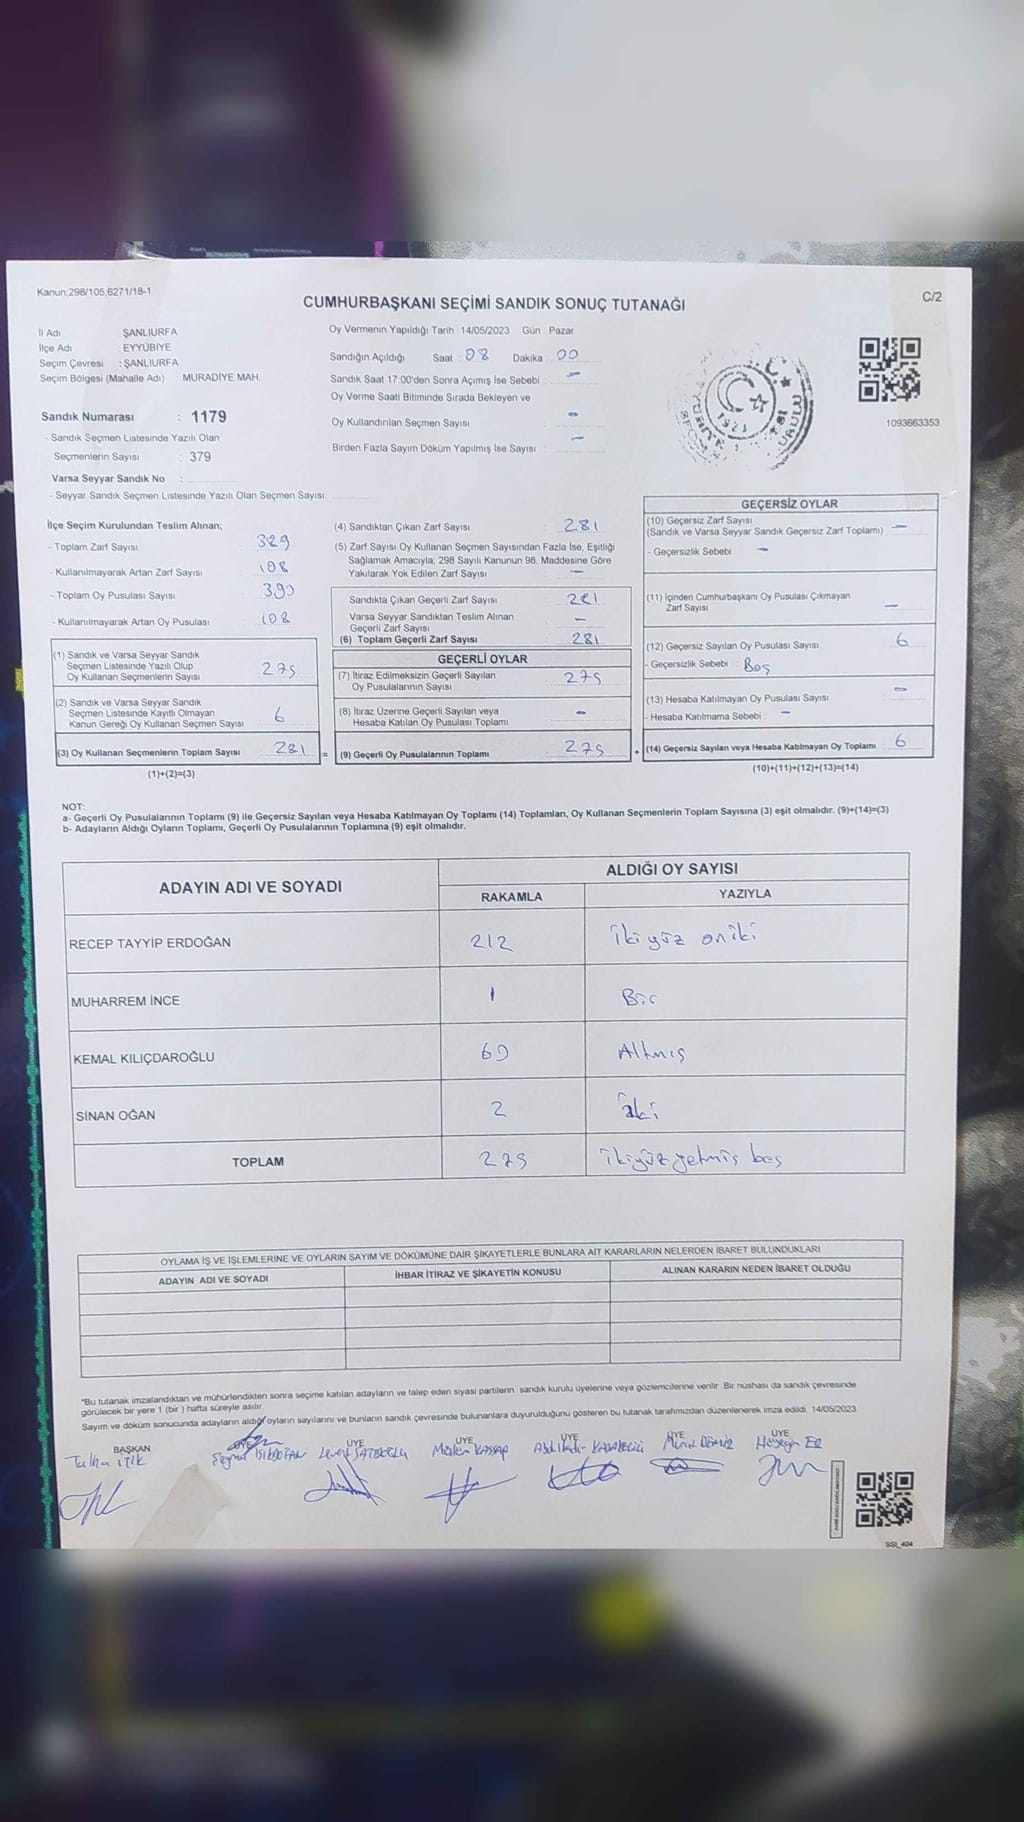 Kanun:298/105;6271/18-1
C/2
CUMHURBAŞKANI SEÇİMİ SANDIK SONUÇ TUTANAĞI
İl Adı ŞANLIURFA
İlçe Adı : EYYÜBİYE
Seçim Çevresi : ŞANLIURFA
Seçim Bölgesi (Mahalle Adı) MURADİYE MAH.
Sandık Numarası : 1179
- Sandık Seçmen Listesinde Yazılı Olan
Seçmenlerin Sayısı : 379
Varsa Seyyar Sandık No :
- Seyyar Sandık Seçmen Listesinde Yazılı Olan Seçmen Sayısı
Oy Vermenin Yapıldığı Tarih : 14/05/2023 Gün : Pazar
Sandığın Açıldığı Saat : 08 Dakika : 00
Sandık Saat 17:00'den Sonra Açılmış İse Sebebi –
Oy Verme Saati Bitiminde Sırada Bekleyen ve
Oy Kullandırılan Seçmen Sayısı –
Birden Fazla Sayım Döküm Yapılmış İse Sayısı –
1093663353
İlçe Seçim Kurulundan Teslim Alınan;
- Toplam Zarf Sayısı 389
- Kullanılmayarak Artan Zarf Sayısı 108
- Toplam Oy Pusulası Sayısı 390
- Kullanılmayarak Artan Oy Pusulası 108
(1) Sandık ve Varsa Seyyar Sandık
Seçmen Listesinde Yazılı Olup
Oy Kullanan Seçmenlerin Sayısı 275
(2) Sandık ve Varsa Seyyar Sandık
Seçmen Listesinde Kayıtlı Olmayan
Kanun Gereği Oy Kullanan Seçmen Sayısı 6
(3) Oy Kullanan Seçmenlerin Toplam Sayısı 281 =
(1)+(2)=(3)
(4) Sandıktan Çıkan Zarf Sayısı 281
(5) Zarf Sayısı Oy Kullanan Seçmen Sayısından Fazla İse, Eşitliği
Sağlamak Amacıyla, 298 Sayılı Kanunun 98. Maddesine Göre
Yakılarak Yok Edilen Zarf Sayısı –
Sandıkta Çıkan Geçerli Zarf Sayısı 281
Varsa Seyyar Sandıktan Teslim Alınan
Geçerli Zarf Sayısı –
(6) Toplam Geçerli Zarf Sayısı 281
GEÇERLİ OYLAR
(7) İtiraz Edilmeksizin Geçerli Sayılan
Oy Pusulalarının Sayısı 275
(8) İtiraz Üzerine Geçerli Sayılan veya
Hesaba Katılan Oy Pusulası Toplamı –
(9) Geçerli Oy Pusulalarının Toplamı 275 +
GEÇERSİZ OYLAR
(10) Geçersiz Zarf Sayısı
(Sandık ve Varsa Seyyar Sandık Geçersiz Zarf Toplamı) –
- Geçersizlik Sebebi –
(11) İçinden Cumhurbaşkanı Oy Pusulası Çıkmayan
Zarf Sayısı –
(12) Geçersiz Sayılan Oy Pusulası Sayısı 6
- Geçersizlik Sebebi : Boş
(13) Hesaba Katılmayan Oy Pusulası Sayısı –
- Hesaba Katılmama Sebebi : –
(14) Geçersiz Sayılan veya Hesaba Katılmayan Oy Toplamı 6
(10)+(11)+(12)+(13)=(14)
NOT:
a- Geçerli Oy Pusulalarının Toplamı (9) ile Geçersiz Sayılan veya Hesaba Katılmayan Oy Toplamı (14) Toplamları, Oy Kullanan Seçmenlerin Toplam Sayısına (3) eşit olmalıdır. (9)+(14)=(3)
b- Adayların Aldığı Oyların Toplamı, Geçerli Oy Pusulalarının Toplamına (9) eşit olmalıdır.
ADAYIN ADI VE SOYADI ALDIĞI OY SAYISI
RAKAMLA YAZIYLA
RECEP TAYYİP ERDOĞAN 212 İkiyüz oniki
MUHARREM İNCE 1 Bir
KEMAL KILIÇDAROĞLU 60 Altmış
SİNAN OĞAN 2 iki
TOPLAM 275 ikiyüzyetmiş beş
OYLAMA İŞ VE İŞLEMLERİNE VE OYLARIN SAYIM VE DÖKÜMÜNE DAİR ŞİKAYETLERLE BUNLARA AİT KARARLARIN NELERDEN İBARET BULUNDUKLARI
ADAYIN ADI VE SOYADI İHBAR İTİRAZ VE ŞİKAYETİN KONUSU ALINAN KARARIN NEDEN İBARET OLDUĞU
*Bu tutanak imzalandıktan ve mühürlendikten sonra seçime katılan adayların ve talep eden siyasi partilerin sandık kurulu üyelerine veya gözlemcilerine verilir. Bir nüshası da sandık çevresinde
görülecek bir yere 1 (bir) hafta süreyle asılır.
Sayım ve döküm sonucunda adayların aldığı oyların sayılarını ve bunların sandık çevresinde bulunanlara duyurulduğunu gösteren bu tutanak tarafımızdan düzenlenerek imza edildi. 14/05/2023
BAŞKAN ÜYE ÜYE ÜYE ÜYE ÜYE ÜYE
Talha İTİK Murat DEMİR Hüseyin ER
SSİ_404